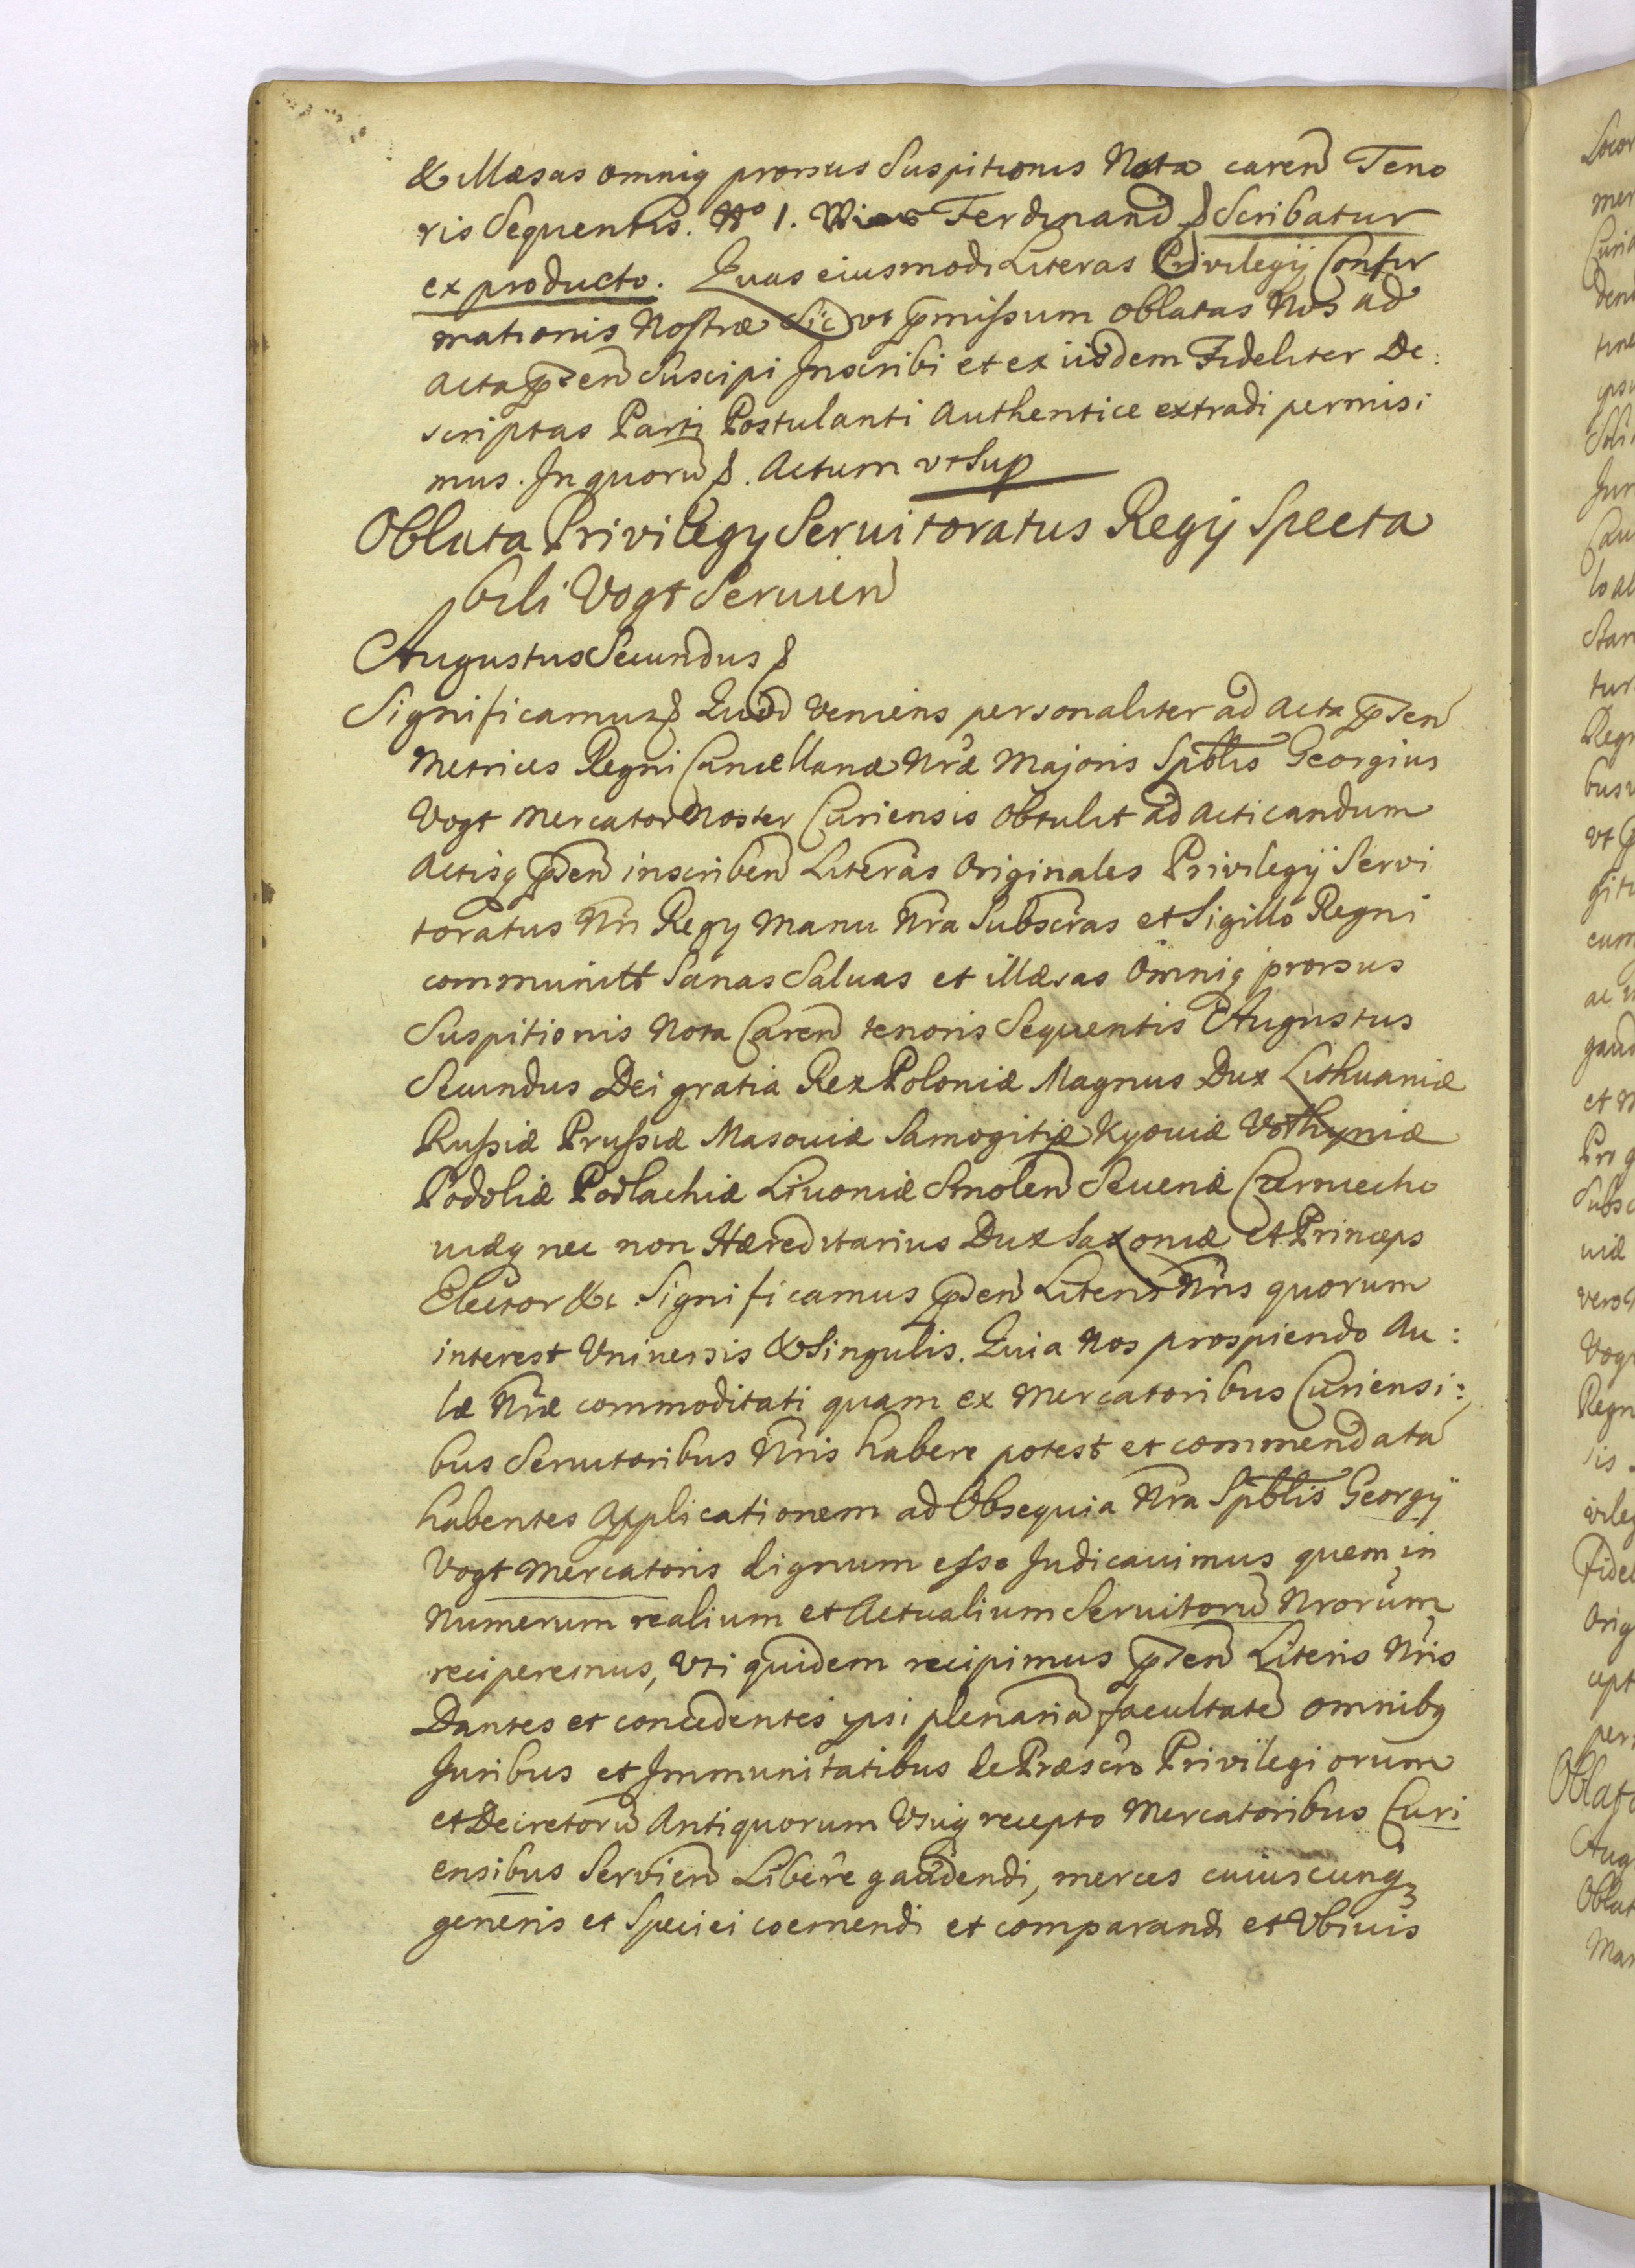 & illæsas omniq prorsus Suspitionis Nota caren Teno
ris Sequentis. No 1. Ferdinand Scribatur
ex producto. Quas eiusmodi Literas Privilegÿ Confir
mationis Nostræ Sic vt pmissum oblatas Nos ad
acta psen Suscipi Inscribi et ex iisdem Fideliter De:
scriptas Parti Postulanti Authentice extradi permisi
mus. In quorū. Actum vt Sup
Oblata Privilegy Seruitoratus Regÿ Specta
bili Vogt Seruien
Augustus Secundus
Significamus Quod Veniens personaliter ad acta psen
Metrices Regni Cancellariæ Nræ Majoris Spblis Georgius
Vogt Mercator Noster Curiensis obtulit ad acticandum
Actisq psen inscriben Literas Originales Privilegÿ Servi
toratus Nri Regy Manu Nra Subscras et Sigillo Regni
communitt Sanas Saluas et illæsas Omniq prorsus
Suspitionis Nota Caren tenoris Sequentis Augustus
Secundus Dei gratia Rex Poloniæ Magnus Dux Lithuaniæ
Russiæ Prussiæ Masouiæ Samogitiæ Kyouiæ Volhyniæ
Podoliæ Podlachiæ Liuoniæ Smolen Seueriæ Czerniecho
uiæq nec non Hæreditarius Dux Saxoniæ et Princeps
Elector &c. Significamus psen Literis Nris quorum
interest Vniuersis & Singulis. Quia Nos prospiendo Au:
læ Nræ commoditati quam ex Mercatoribus Curiensi:
bus Seruitoribus Nris habere potest et commendata
habentes Applicationem ad Obsequia Nra Spblis Georgÿ
Vogt Mercatoris dignum esse Judicauimus quem in
Numerum realium et Actualium Seruitorū Nrorum
reciperemus, Vti quidem recipimus psen Literis Nris
Dantes et concedentes ipsi plenariā facultatē omnibq
Juribus et Immunitatibus de Præscro Privilegiorum
et Decretorū Antiquorum Vsuq recepto Mercatoribus Curi
ensibus Servien Libere gaudendi, merces cuiuscunq
generis et Speciei coemendi et comparandi et Vbiuis